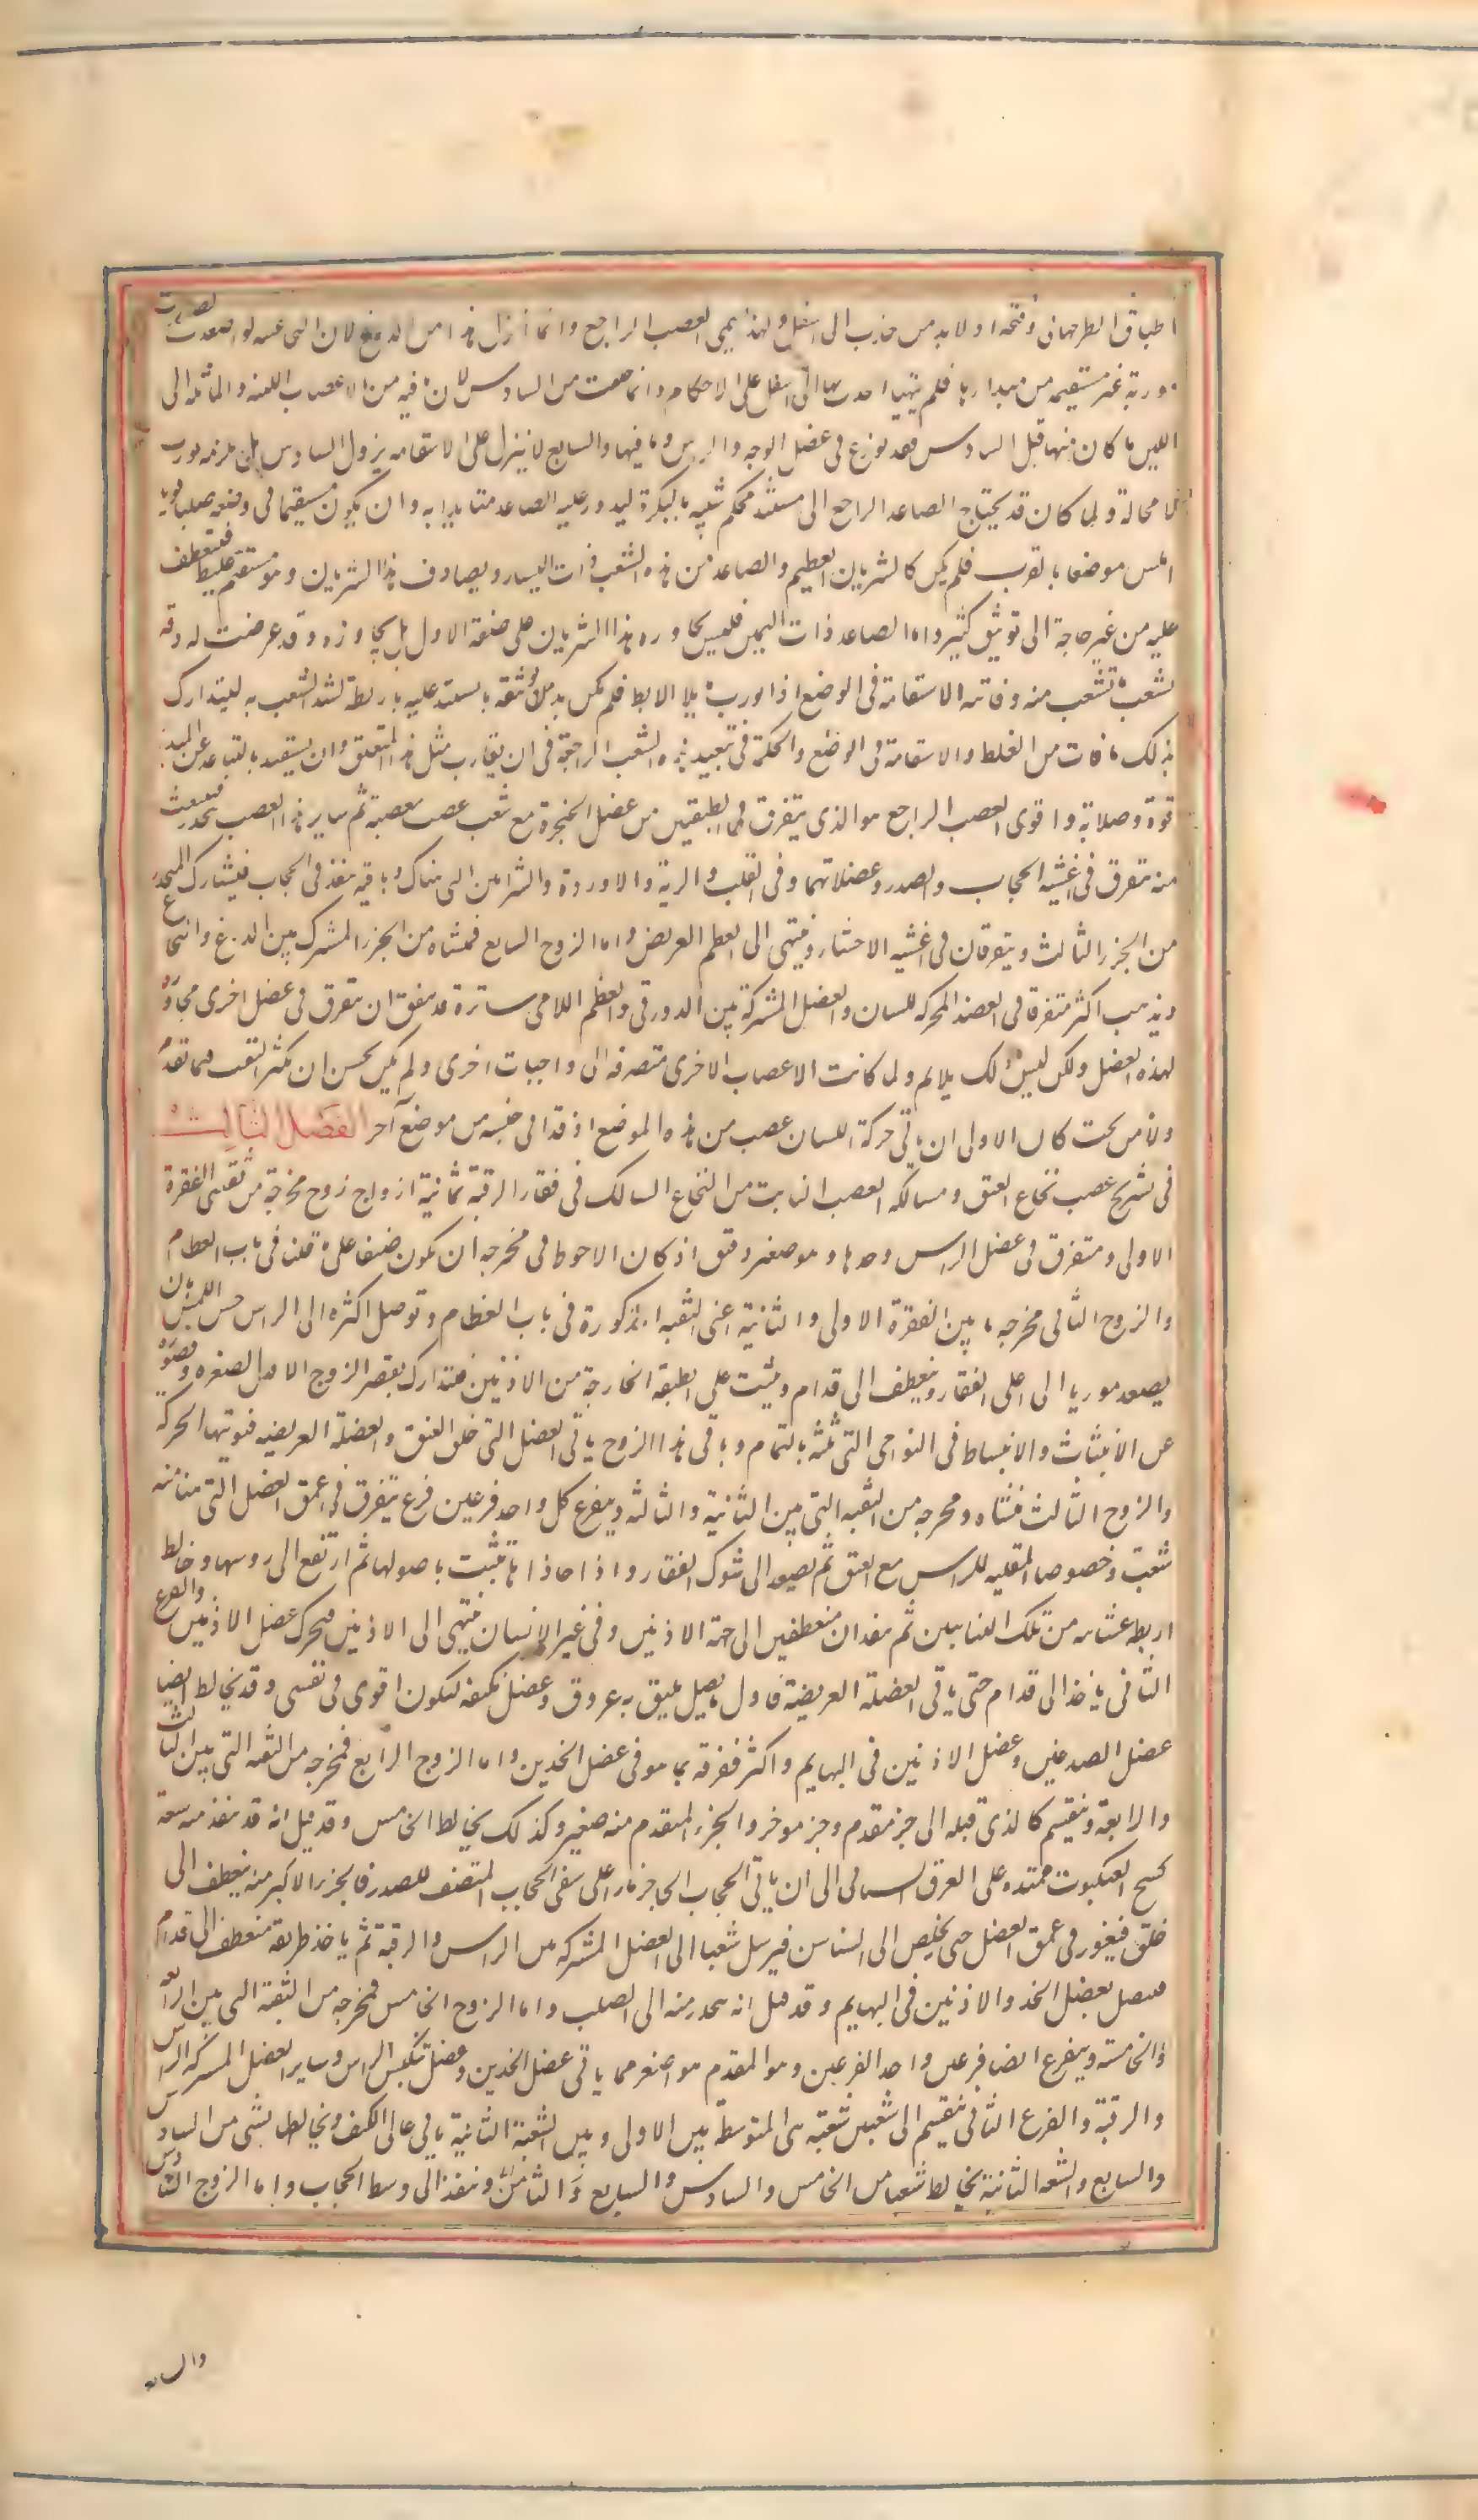 اطباق الطرجهاني وفتحه اولا بد من جذب الى اسفل ولهذا يسمى العصب الراجع وانما انزل هذا من الدماغ لان النخاعيه لو اصعدت لصعدت
موربة غير مستقيمه من مبداءها فلم يتهيا احدبها الى اسفل على الاحكام وانما خلقت من السادس لان ما فيه من الاعصاب اللينه والمائله الى
اللين ما كان منها قبل السادس فقد توزع فى عضل الوجه والراس وما فيها والسابع لا ينزل على الاستقامه نزول السادس بل يلزمه تورب
لا محالة ولما كان قد يحتاج الصاعد الراجع الى مستند محكم شبيه بالبكرة ليدور عليه الصاعد متايدا به وان يكون مستقيما فى وضعه صلبا قويا
املس موضعا بالقرب فلم يكن كالشريان العظيم والصاعد من هذه الشعب ذات اليسار ويصادف هذا الشريان وهو مستقيم غليظ فينعطف
عليه من غير حاجة الى توثيق كثير واما الصاعد ذات اليمين فليس يجاوره هذا الشريان على صفة الاول بل يجاوزه وقد عرضت له دقه
لشعب تشعب منه وفاته الاستقامة فى الوضع اذا تورب مايلا الى الابط فلم يكن بد من توثيقه بما يستند عليه باربطة تشد الشعب به ليتدارك
بذلك ما فات من الغلظ والاستقامة فى الوضع والحكمة فى تبعيد هذه الشعب الراجعة فى ان يقارب مثل هذا المتعلق وان يستفيد بالتباعد عن المبدء
قوة وصلابة واقوى العصب الراجع هو الذى يتفرق فى الطبقتين من عضل الحنجرة مع شعب عصب معصبة ثم ساير هذا العصب ينحدر فيتشعب
منه تتفرق فى اغشية الحجاب والصدر وعضلاتهما وفى القلب والرية والاوردة والشرائين التى هناك وباقيه ينفذ فى الحجاب فيشارك المنحدر
من الجزء الثالث ويتفرقان فى اغشية الاحشاء وينتهى الى العظم العريض واما الزوج السابع فمنشاه من الجزء المشترك بين الدماغ والنخاع
ويذهب اكثره متفرقا فى العضل المحركه للسان والعضل المشتركة بين الدورقى والعظم اللامى وسايره قد يتفق ان يتفرق فى عضل اخرى مجاورة
لهذه العضل ولكن ليس ذلك بدايم ولما كانت الاعصاب الاخرى منصرفه الى واجبات اخرى ولم يكن يحسن ان يكثر الثقب فيما تقدم
ولا من تحت كان الاولى ان ياتى حركة اللسان عصب من هذه الموضع اذ قد اتى حسه من موضع آخر الفصل الثالث
فى تشريح عصب نخاع العنق ومسالكه العصب النابت من النخاع السالك فى فقار الرقبة ثمانية ازواج زوج مخرجه من ثقبتى الفقرة
الاولى ومتفرق فى عضل الراس وحدها وهو صغير دقيق اذ كان الاحوط فى مخرجه ان يكون ضيقا على ما قلنا فى باب العظام
والزوج الثانى مخرجه ما بين الفقرة الاولى والثانية اعنى الثقبه المذكورة فى باب العظام وتوصل اكثره الى الراس حس اللمس بان
يصعد موربا الى اعلى الفقار وينعطف الى قدام وينبث على الطبقة الخارجة من الاذنين فتدارك بقصر الزوج الاول لصغره وقصوره
عن الانبثاث والانبساط فى النواحى التى تليه بالتمام وباقى هذا الزوج ياتى العضل التى خلف العنق والعضلة العريضه فيوتيها الحركه
والزوج الثالث منشاه ومخرجه من الثقبه التى بين الثانية والثالثه ويتفرع كل واحد فرعين فرع يتفرق فى عمق العضل التى هناك منه
شعب وخصوصا المقلبه للراس مع العنق ثم يصعد الى شوك الفقار واذا حاذاها تشبث باصولها ثم ارتفع الى روسها وخالط
اربطه غشائيه من تلك السناسن ثم ينفذان منعطفين الى جهة الاذنين وفى غير الانسان ينتهى الى الاذنين فيحرك عضل الاذنين والفرع
الثانى ياخذ الى قدام حتى ياتى العضلة العريضة واول ما يصعد يلتف به عروق وعضل تكتنفه ليكون اقوى فى نفسه وقد يخالط ايضا
عضل الصدغين وعضل الاذنين فى البهايم واكثر تفرقه انما هو فى عضل الخدين واما الزوج الرابع فمخرجه من الثقبه التى بين الثالثة
والرابعة وينقسم كالذى قبله الى جزء مقدم وجزء موخر والجزء المقدم منه صغير وكذلك يخالط الخامس وقد قيل انه قد ينفذ منه شعبة
كنسج العنكبوت ممتده على العرق السباتى الى ان ياتى الحجاب الحاجز مارا على شقى الحجاب المنصف للصدر فالجزء الاكبر منه ينعطف الى
خلف فيغور فى عمق العضل حتى يخلص الى السناسن فيرسل شعبا الى العضل المشتركه بين الراس والرقبة ثم ياخذ طريقه منعطفا الى قدام
فيتصل بعضل الخد والاذنين فى البهايم وقد قيل انه ينحدر منه الى الصلب واما الزوج الخامس فمخرجه من الثقبة التى بين الرابعة
والخامسة ويتفرع ايضا فرعين واحد الفرعين وهو المقدم هو اصغرهما ياتى عضل الخدين وعضل تنكيس الراس وساير العضل المشتركه للراس
والرقبة والفرع الثانى ينقسم الى شعبتين شعبته هى المتوسطة بين الاولى وبين الشعبة الثانية ياتى اعالى الكتف ويخالطه شى من السادس
والسابع والشعبه الثانية يخالط شعبا من الخامس والسادس والسابع والثامن وينفذ الى وسط الحجاب واما الزوج السادس
والسابع